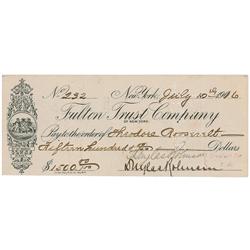 No 232 New York, July 10th 1916
Fulton Trust Company
OF NEW YORK
Pay to the order of Theodore Roosevelt
Fifteen hundred Dollars
$1500